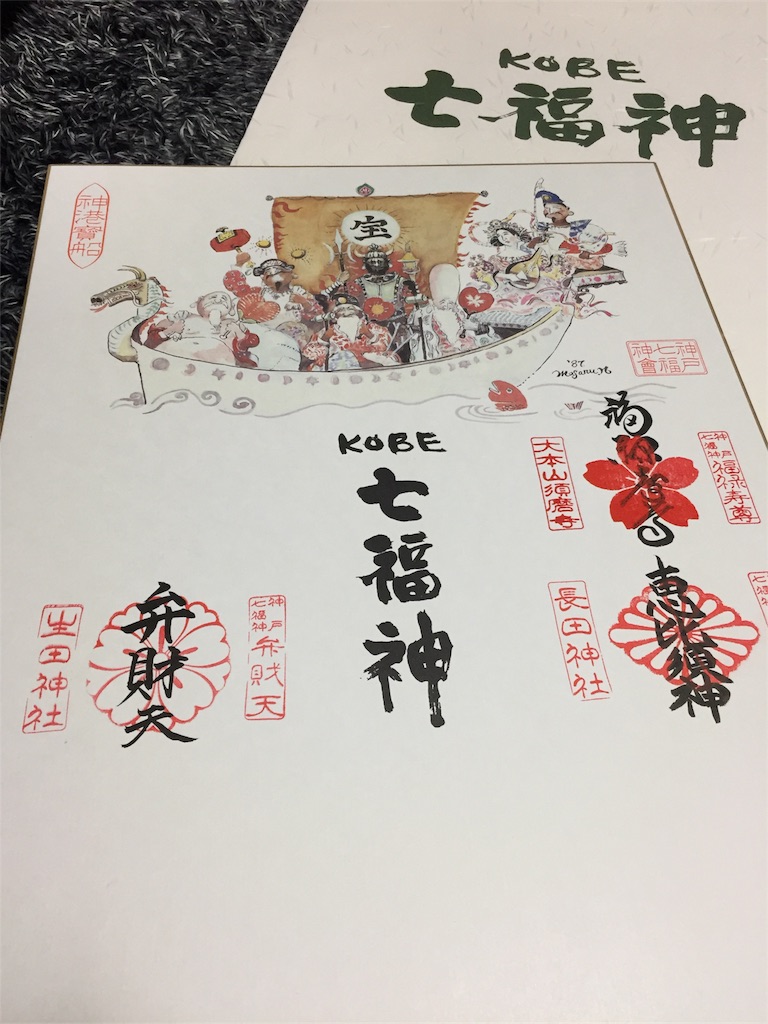 KOBE
七福神
神港寳船
宝
'87
神戸
七福
神會
KOBE
七福神
大本山須磨寺
神戸
七福神
福禄寿尊
長田神社
恵比須神
七福神
生田神社
弁財天
神戸
七福神
弁財天